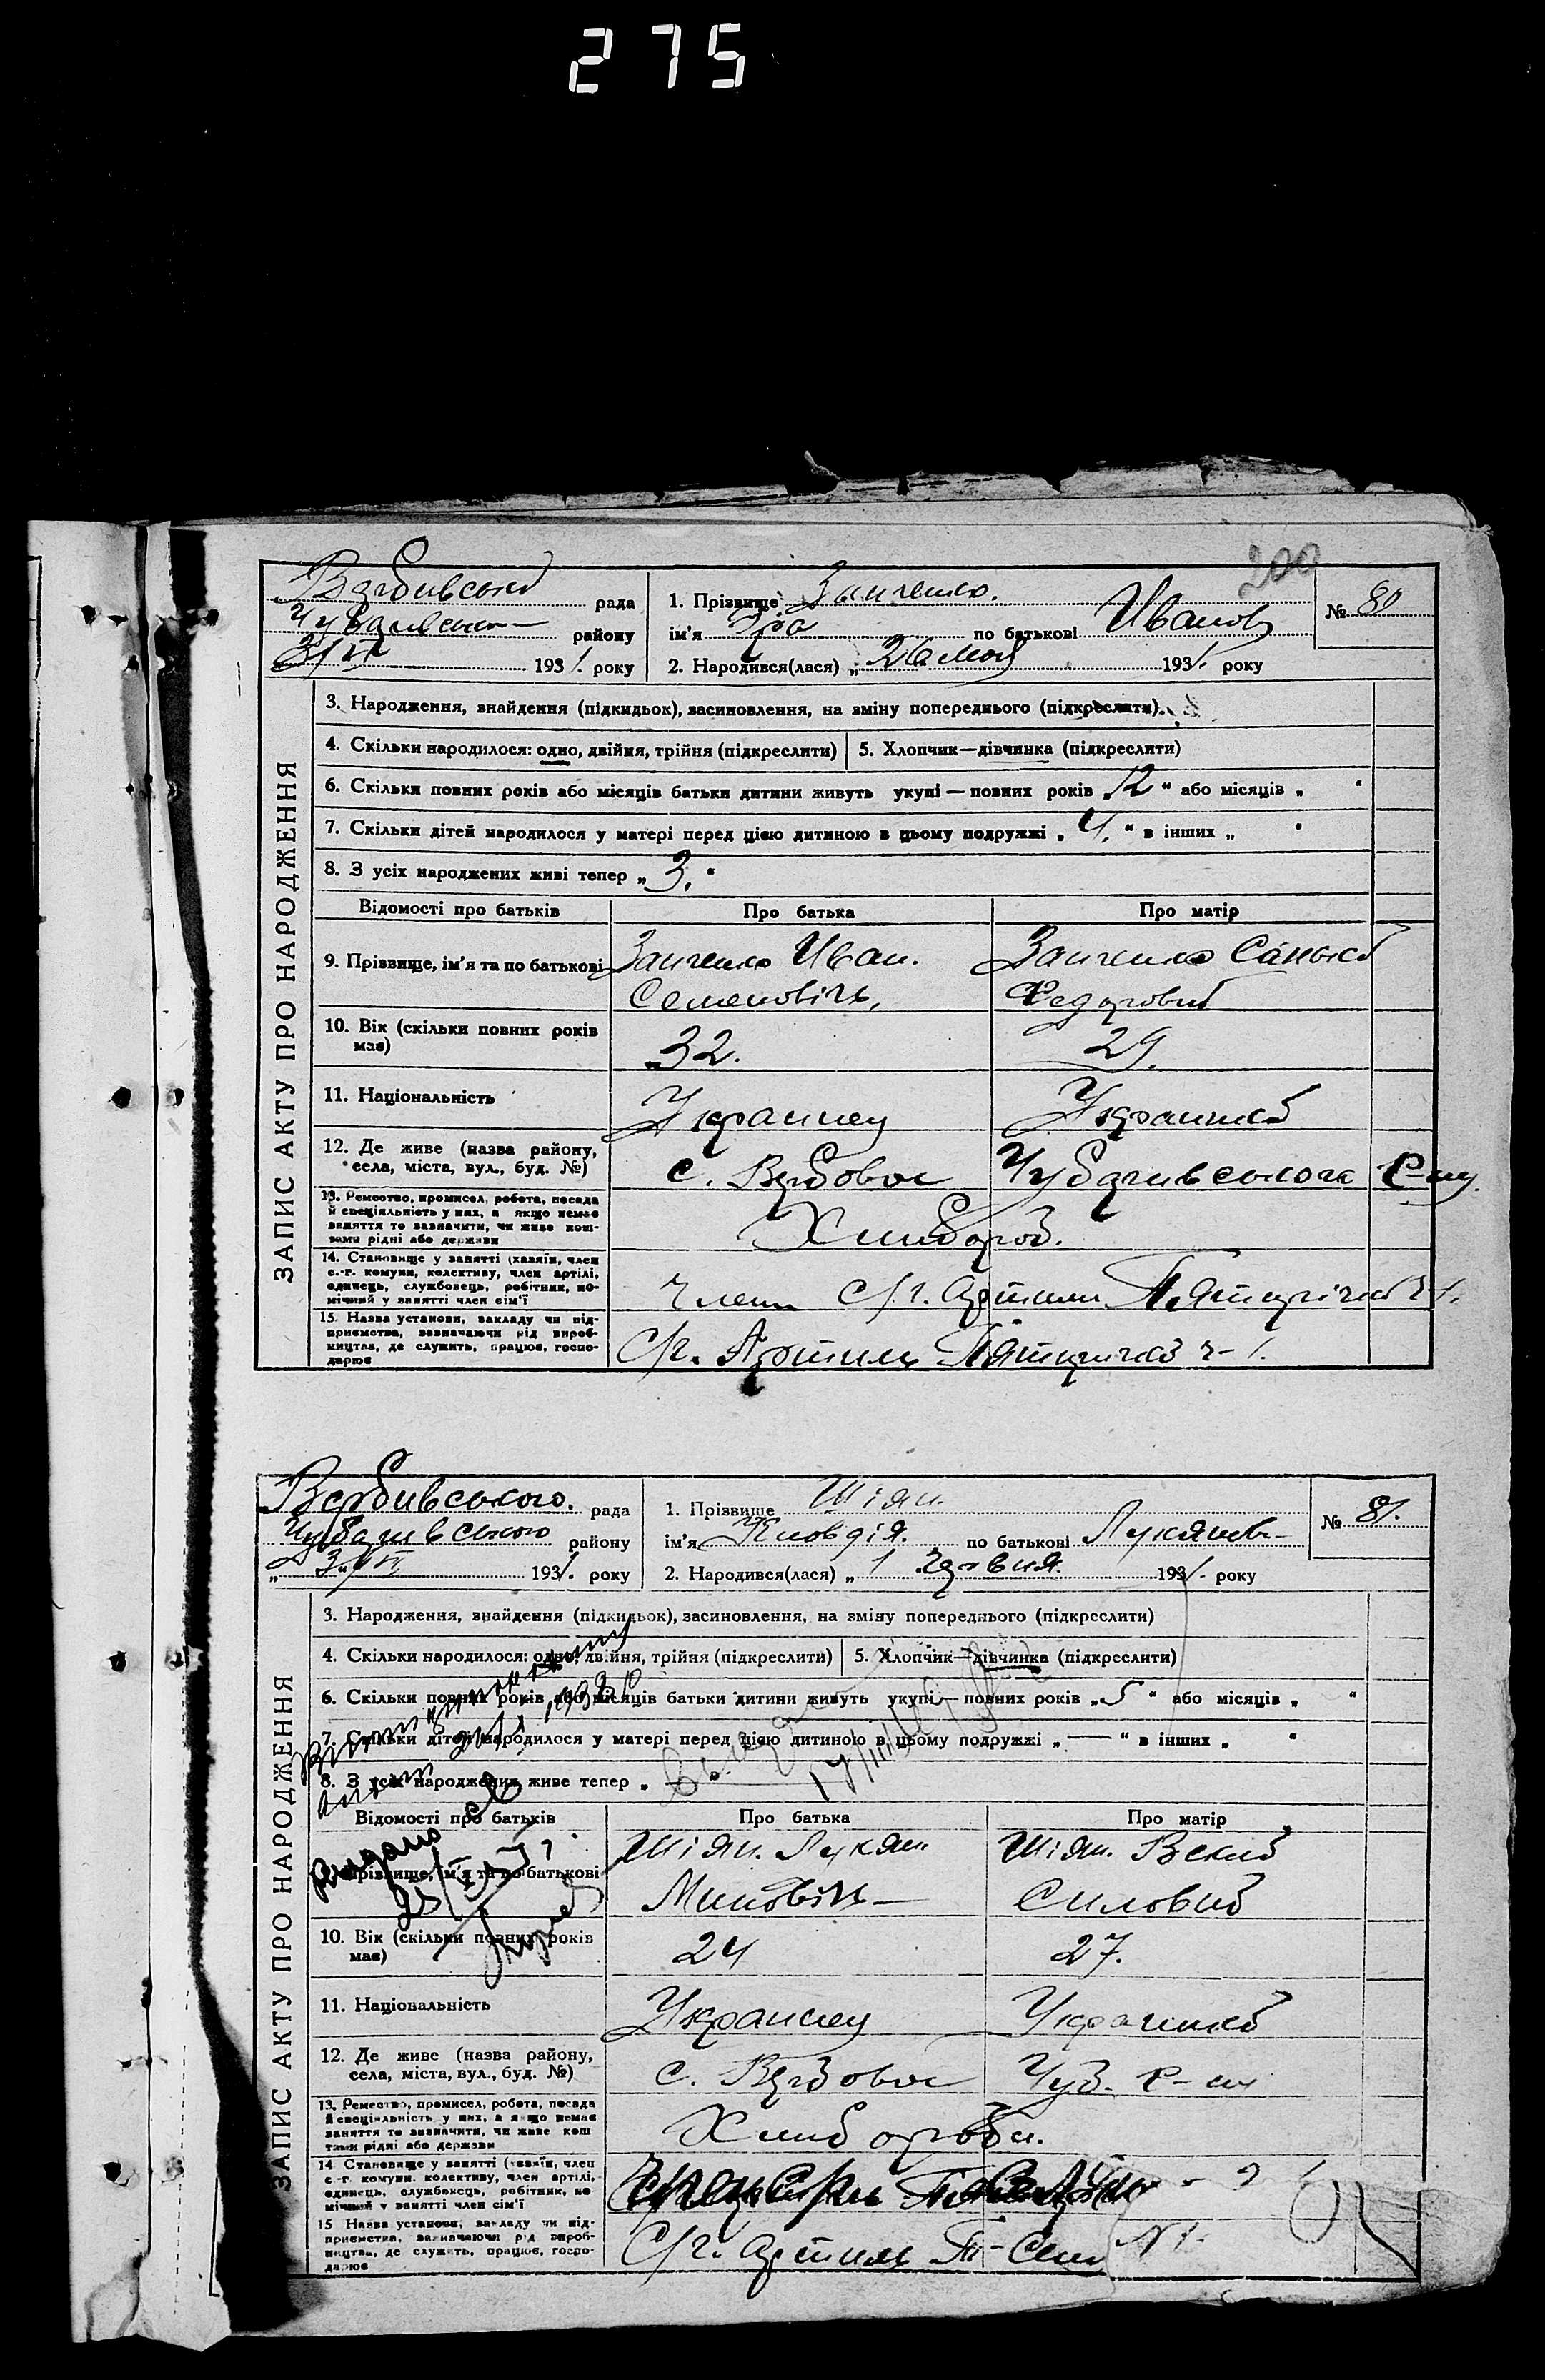 275
200
Вербивської рада
Чубарівсько району
3/VI 1931. року
1. Прізвище Заиченко.
ім'я по батькові Иванов
2. Народився(лася) „26 мая 1931. року
№ 80
ЗАПИС АКТУ ПРО НАРОДЖЕННЯ
3. Народження, знайдення (підкидьок), засиновлення, на зміну попереднього (підкреслити)
4. Скільки народилося: одно, двійня, трійня (підкреслити) 5. Хлопчик—дівчинка (підкреслити)
6. Скільки повних років або місяців батьки дитини живуть укупі — повних років „12“ або місяців „ “
7. Скільки дітей народилося у матері перед цією дитиною в цьому подружжі „4.“ в інших „ “
8. З усіх народжених живі тепер „3.“
Відомості про батьків Про батька Про матір
9. Прізвище, ім'я та по батькові Заиченко Иван. Заиченко
Семеновічь, Федоровна
10. Вік (скільки повних років має) 32. 29.
11. Національність Украинец Украинка
12. Де живе (назва району, села, міста, вул., буд. №) с. Вербовое Чубаривського р-ну
13. Ремество, промисел, робота, посада й спеціяльність у них, а якщо немає заняття то зазначити, чи живе коштами рідні або держави Хлибороб.
14. Становище у занятті (хазяїн, член с.-г. комуни, колективу, член артілі, одинець, службовець, робітник, помічний у занятті член сім'ї Члени С/г. Артили Пятирічка ч-1.
15. Назва установи, закладу чи підприємства, зазначаючи рід виробництва, де служить, працює, господарює С/г. Артиль Пятиричка ч-1.
Вербивського. рада
Чубаривського району
„ 3/VI 1931. року
1. Прізвище Шіян.
ім'я Явдія. по батькові Лукянов-
2. Народився(лася) „1 червня 1931. року
№ 81.
ЗАПИС АКТУ ПРО НАРОДЖЕННЯ
3. Народження, знайдення (підкидьок), засиновлення, на зміну попереднього (підкреслити)
4. Скільки народилося: одно, двійня, трійня (підкреслити) 5. Хлопчик—дівчинка (підкреслити)
6. Скільки повних років або місяців батьки дитини живуть укупі — повних років „5“ або місяців „ “
7. Скільки дітей народилося у матері перед цією дитиною в цьому подружжі „—“ в інших „ “
8. З усіх народжених живе тепер „
Видано
Відомості про батьків Про батька Про матір
9. Прізвище, ім'я та по батькові Шіян. Лукян. Шіян.
Силовна
10. Вік (скільки повних років має) 24 27.
11. Національність Украинец Украинка
12. Де живе (назва району, села, міста, вул., буд. №) с. Вербовое Чуб. р-ну
13. Ремество, промисел, робота, посада й спеціяльність у них, а якщо немає заняття то зазначити, чи живе коштами рідні або держави Хлибороби.
14. Становище у занятті (хазяїн, член с.-г. комуни, колективу, член артілі, одинець, службовець, робітник, помічний у занятті член сім'ї
15. Назва установи, закладу чи підприємства, зазначаючи рід виробництва, де служить, працює, господарює С/г. Артиль №1.